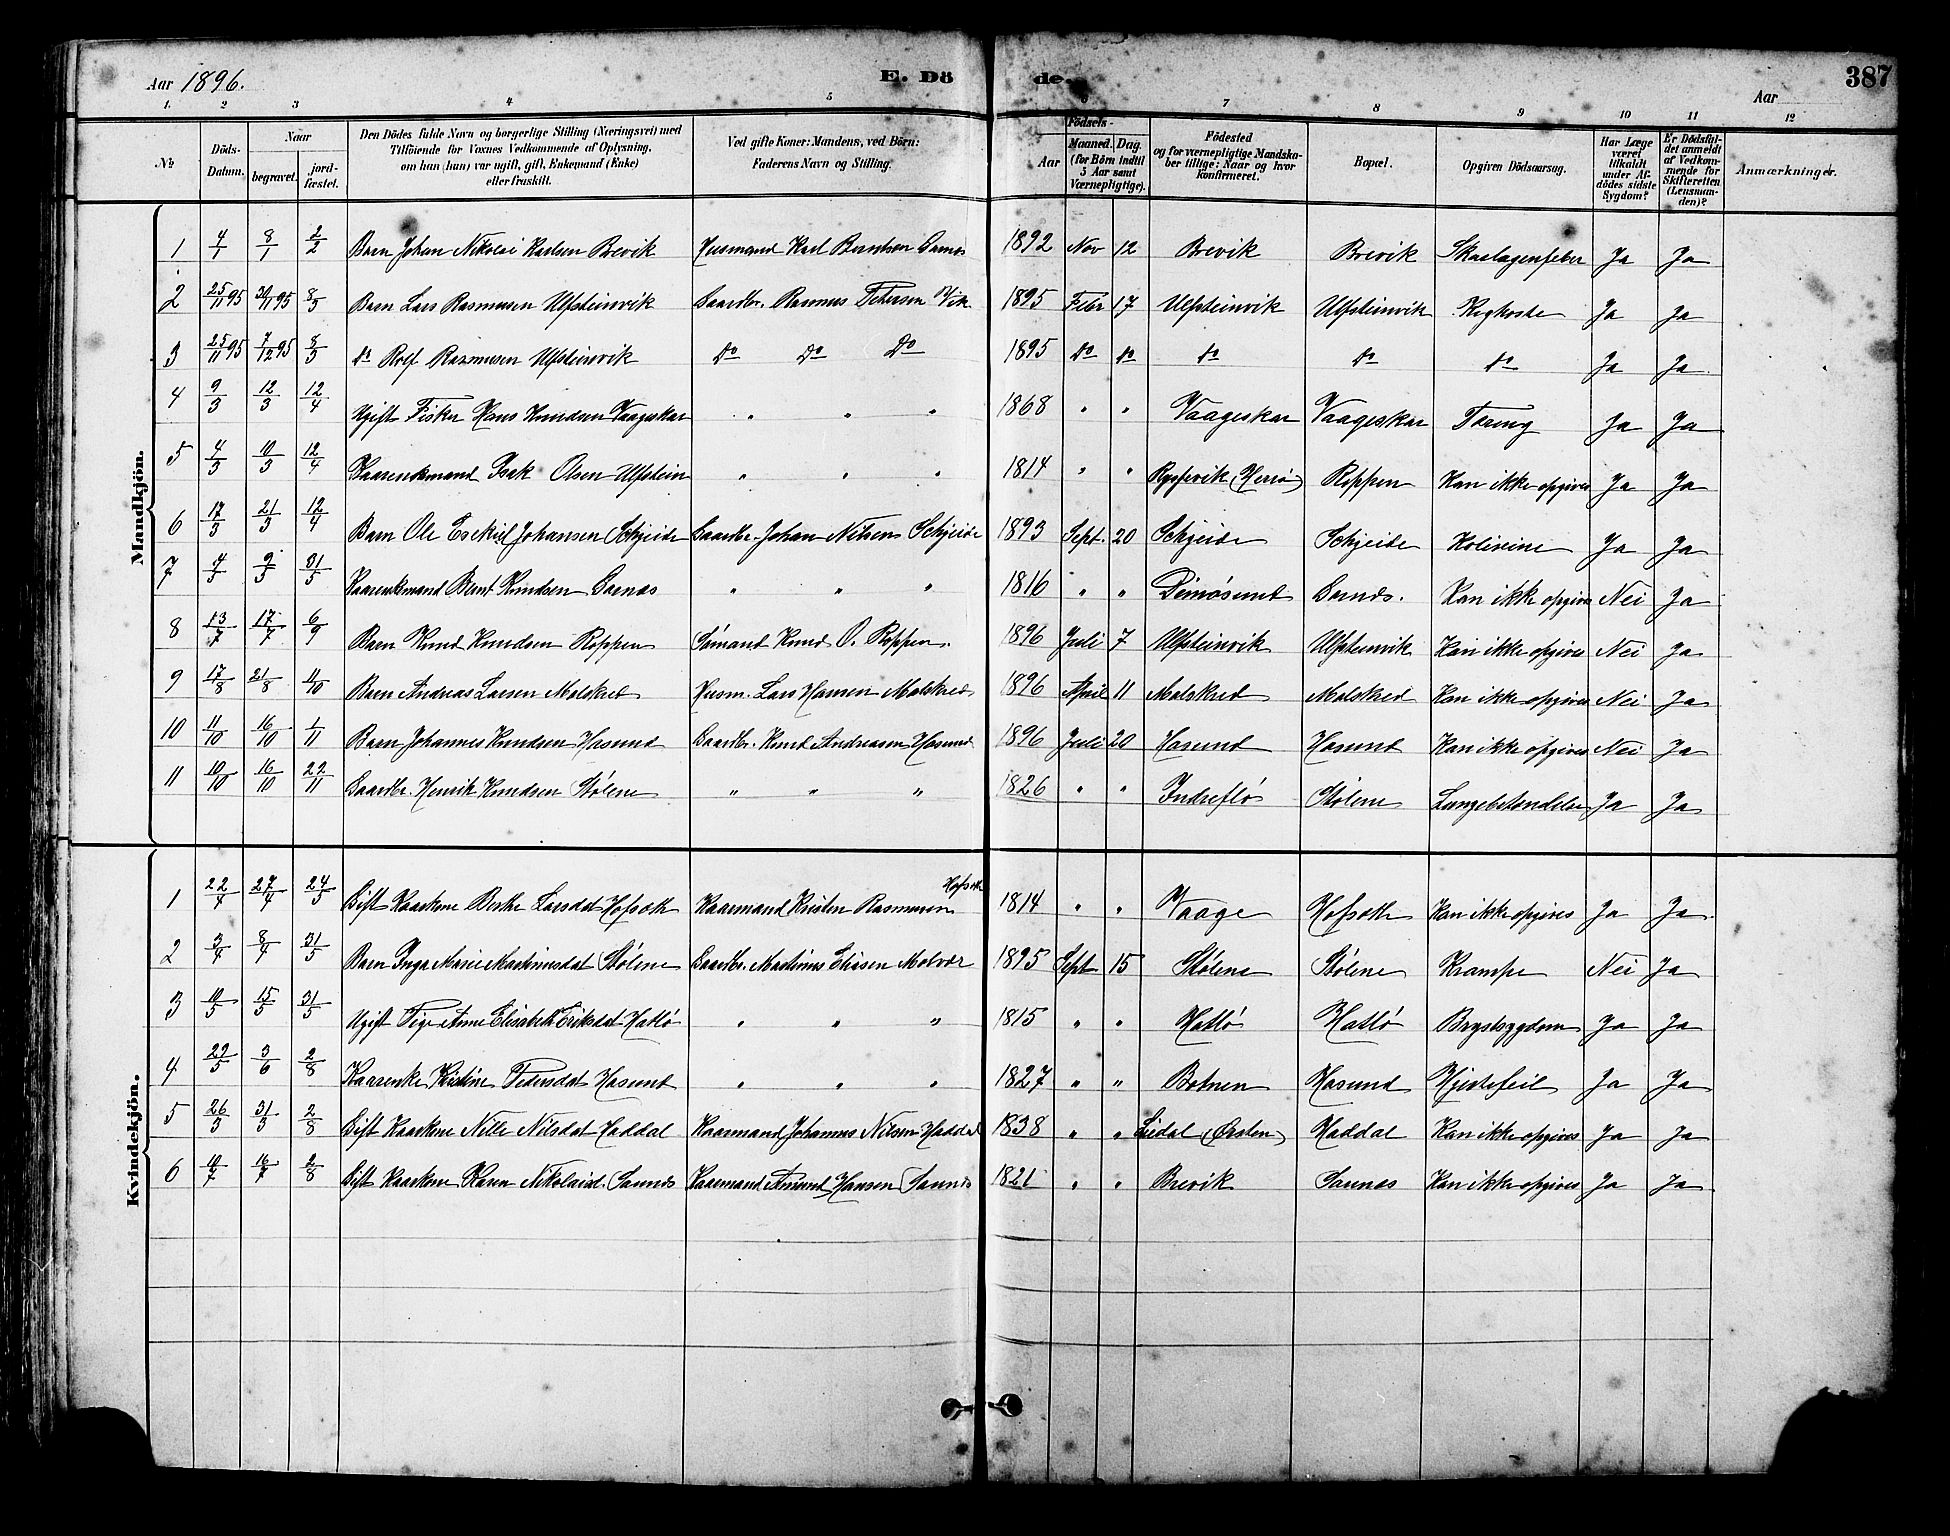 Aar 1896. E. Dö de. Aar 387
1. 2 3 4 5 6 7 8 9 10 11 12
№
Döds-Datum.
Naar
begravet.
jord-fæstet.
Den Dödes fulde Navn og borgerlige Stilling (Næringsvei) med
Tilföiende for Voxnes Vedkommende af Oplysning,
om han (hun) var ugift, gift, Enkemand (Enke)
eller fraskilt.
Ved gifte Koner: Mandens, ved Börn:
Faderens Navn og Stilling.
Födsels-
Aar
Maaned. Dag.
(for Börn indtil
5 Aar samt
Værnepligtige).
Födested
og for værnepligtige Mandska-
ber tillige: Naar og hvor
konfirmeret.
Bopæl.
Opgiven Dödsaarsag.
Har Læge
været
tilkaldt
under Af-
dödes sidste
Sygdom?
Er Dödsfal-
det anmeldt
af Vedkom-
mende for
Skifteretten
(Lensman-
den)?
Anmærkninger.
Mandkjön.
1 4/1 8/1 2/2 Barn Johan Nikolai Karlsen Brevik Husmand Karl Berntsen 1892 Nov 12 Brevik Brevik Skarlagensfeber Ja Ja
2 25/11 95 30/11 95 8/3 Barn Lars Rasmusen Ulfsteinvik Gaardbr. Rasmus Petersen Vik 1895 Febr 17 Ulfsteinvik Ulfsteinvik Kighoste Ja Ja
3 25/11 95 7/12 95 8/3 do Rolf Rasmusen Ulfsteinvik do do do 1895 do do do do do Ja Ja
4 9/3 12/3 12/4 Ugift Fisker Hans Knudsen Vaageskar " " " 1868 " " Vaageskar Vaageskar Tæring Ja Ja
5 4/3 10/3 12/4 Kaarenkmand Isak Olsen Ulfstein " " " 1814 " " (Herrø) Roppen Kan ikke opgives Ja Ja
6 17/3 21/3 12/4 Barn Ole Esekiel Johansen Schjeide Gaardbr. Johan Nilsen Schjeide 1893 Sept. 20 Schjeide Schjeide Kolerine Ja Ja
7 4/5 9/5 31/5 Kaarenkmand Bernt Knudsen Garnæs " " " 1816 " " Dimøsund Garnæs. Kan ikke opgives Nei Ja
8 13/7 17/7 6/9 Barn Knud Knudsen Roppen Sømand Knud O. Roppen. 1896 Juli 7 Ulfsteinvik Ulfsteinvik Kan ikke opgives Nei Ja
9 17/8 21/8 11/10 Barn Andreas Larsen Malskred Husm. Lars Hansen Malskred 1896 April 11 Malskred Malskred Kan ikke opgives Nei Ja
10 11/10 16/10 1/11 Barn Johannes Knudsen Hasund Gaardbr. Knud Andreasen Hasund 1896 Juli 20 Hasund Hasund Kan ikke opgives Nei Ja
11 10/10 16/10 22/11 Gaardbr. Henrik Knudsen Stølene " " " 1826 " " Indreflø Stølene Lungebetændelse Ja Ja
Kvindekjön.
1 22/4 27/4 24/5 Gift Kaarkone Berthe Larsdat Hofsæth Kaarmand Kristen Rasmusen Hofsæth 1814 " " Vaage Hofsæth Kan ikke opgives Ja Ja
2 3/4 8/4 31/5 Barn Inga Marie Martinusdat Stølene Gaardbr. Martinus Eliasen Molvær 1895 Sept 15 Stølene Stølene Krampe Nei Ja
3 10/5 15/5 31/5 Ugift Pige Anne Elisabeth Eriksdat Hatlø " " " 1815 " " Hatlø Hatlø Brystsygdom Ja Ja
4 29/5 3/6 2/8 Kaarenke Kristine Pedersdat Hasund " " " 1827 " " Botnen Hasund Hjertefeil Ja Ja
5 26/3 31/3 2/8 Gift Kaarkone Nille Nilsdat Haddal Kaarmand Johannes Nilsen Haddal 1838 " " (Ørsten) Haddal Kan ikke opgives Ja Ja
6 10/7 16/7 2/8 Gift Kaarkone Karen Nikolaisd. Saunæs Kaarmand Hansen Saunæs 1821 " " Brevik Saunæs Kan ikke opgives Ja Ja